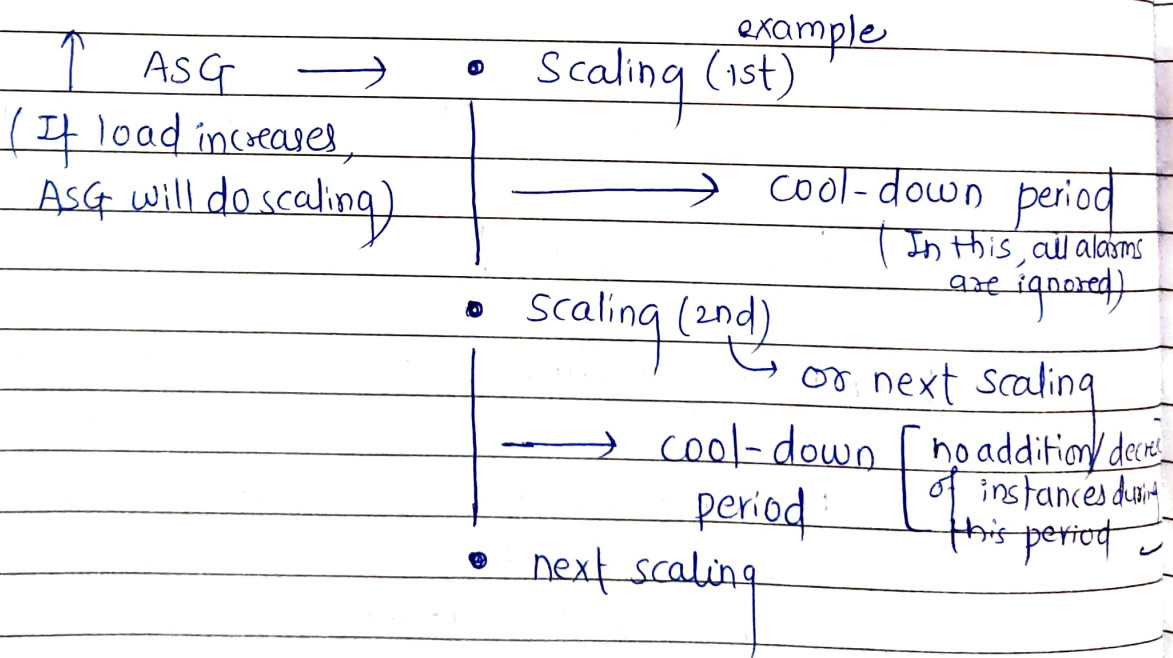 example
↑ ASG → • Scaling (1st)
(If load increases,
ASG will do scaling)
→ cool-down period
(In this, all alarms
are ignored)
• Scaling (2nd)
↳ or next scaling
→ cool-down period
[no addition/decre
of instances during
this period
• next scaling